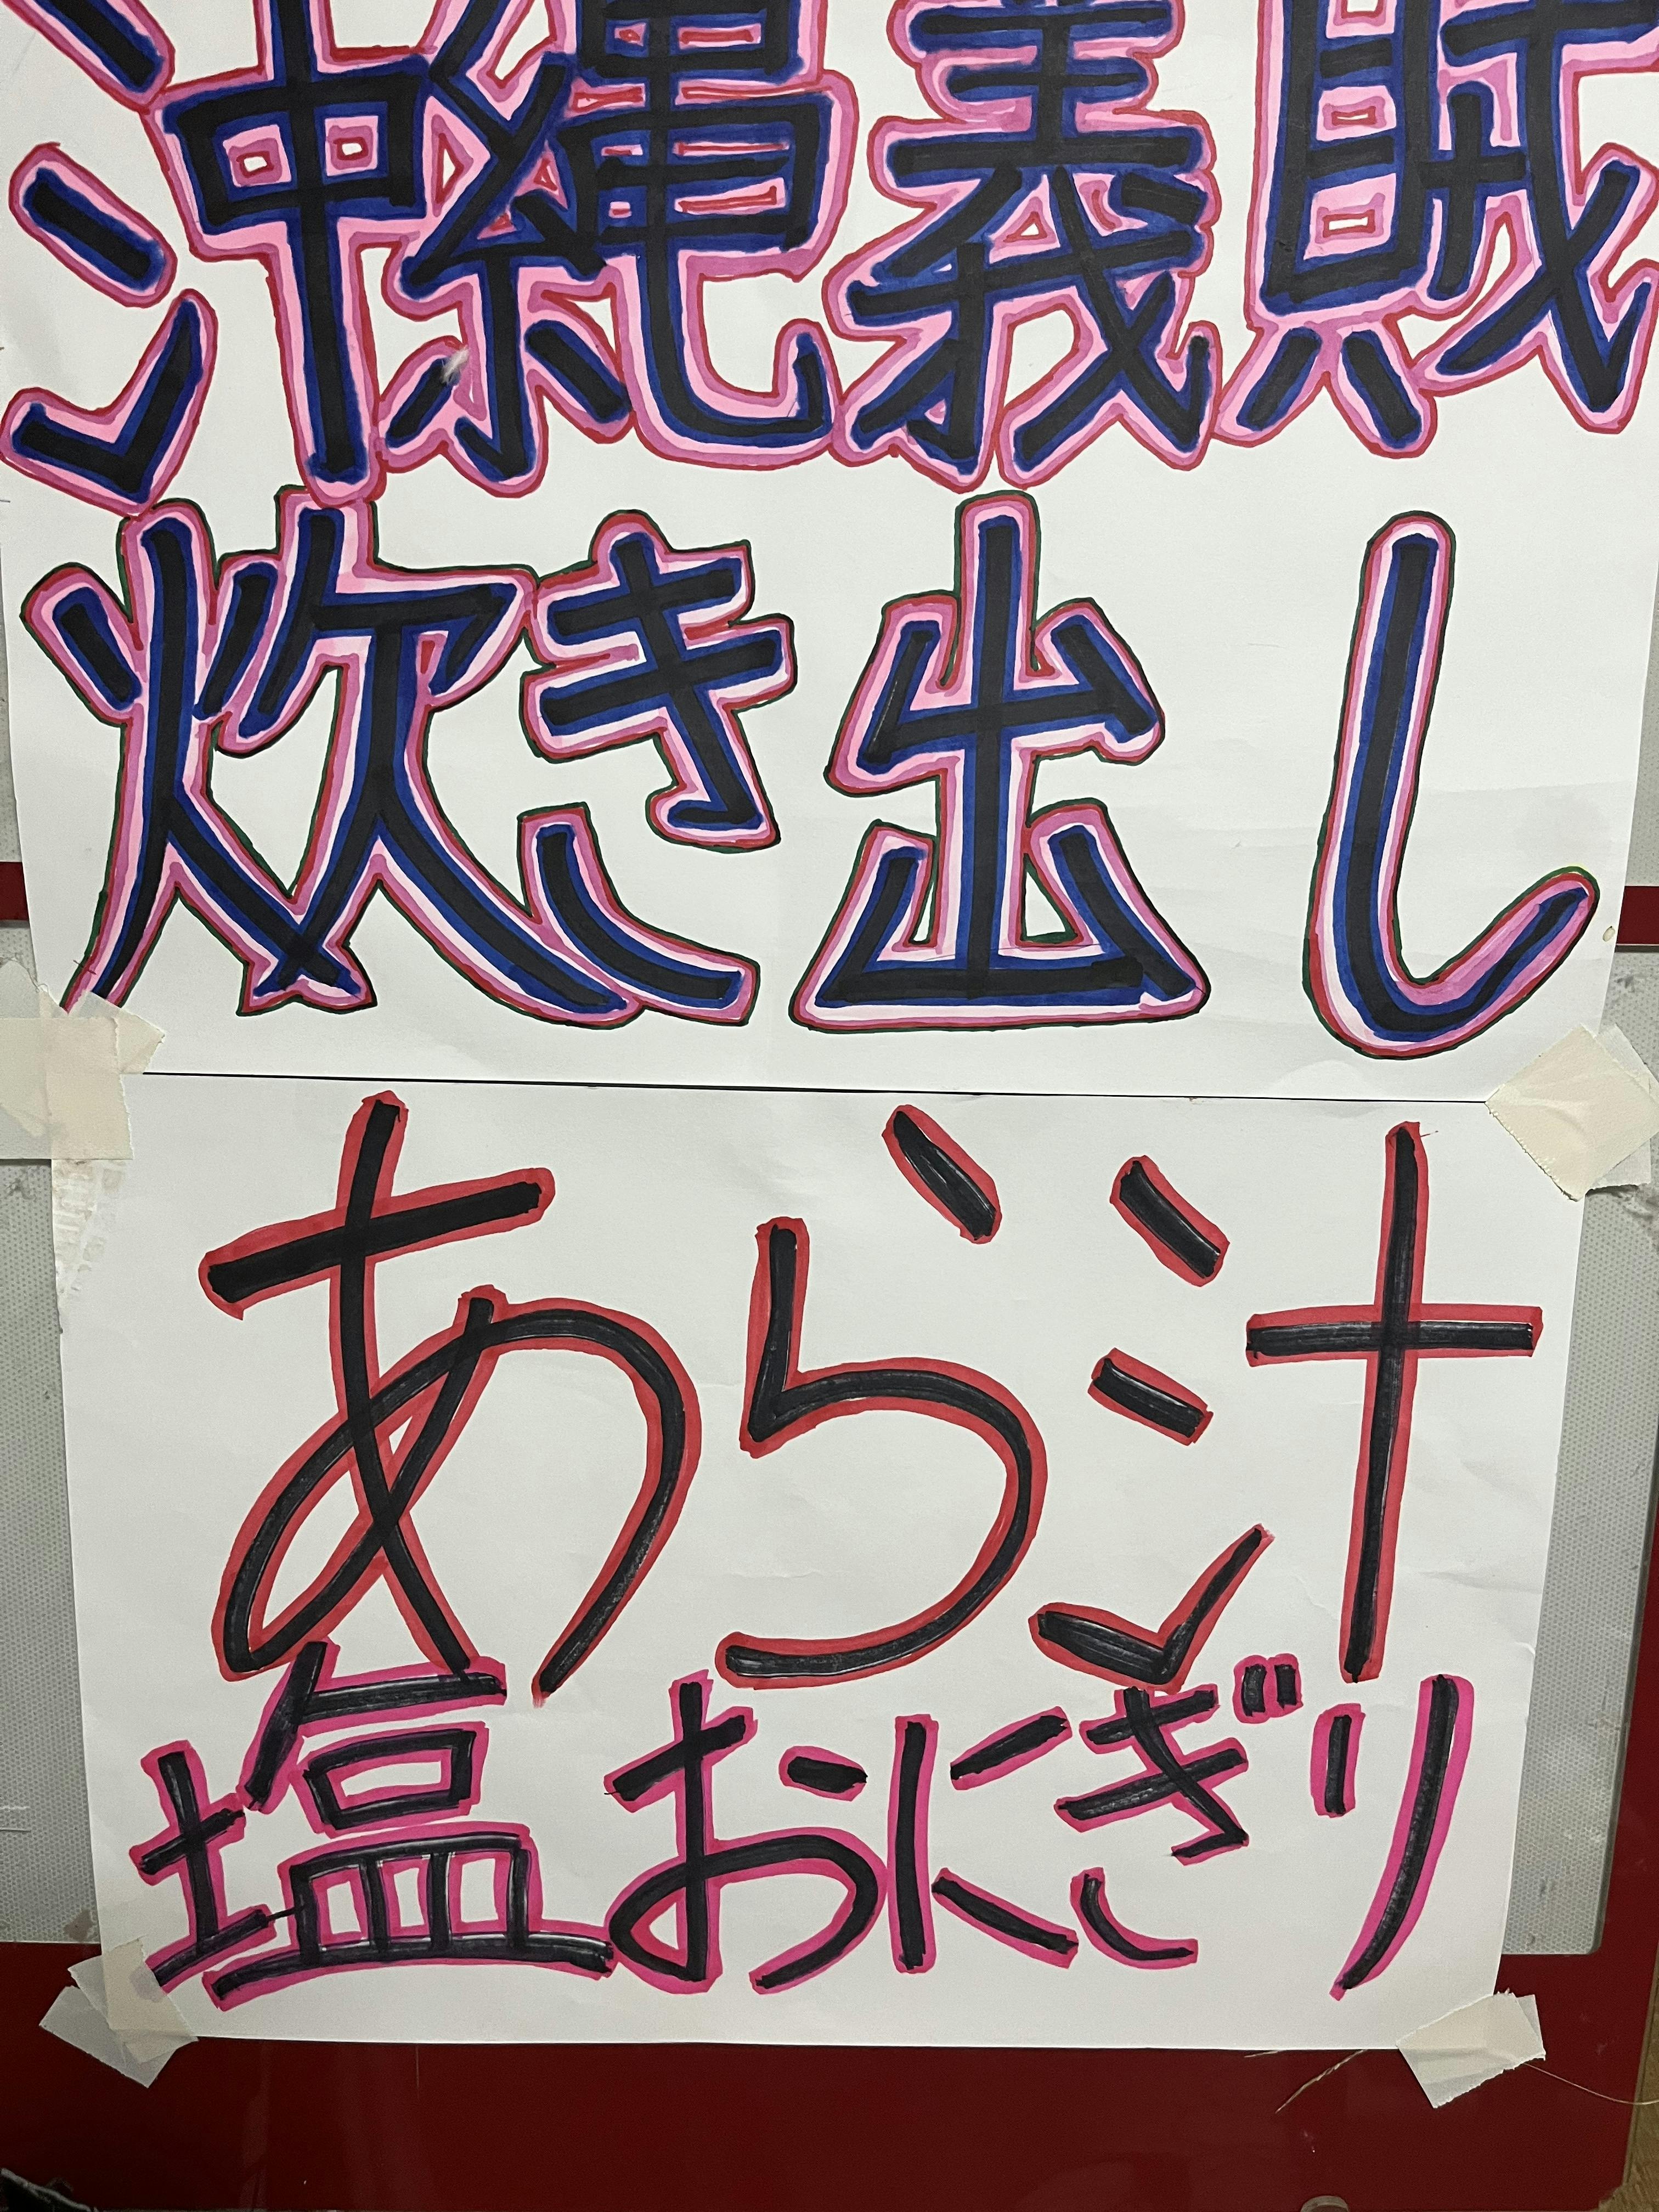 沖縄義賊
炊き出し
あら汁
塩おにぎり